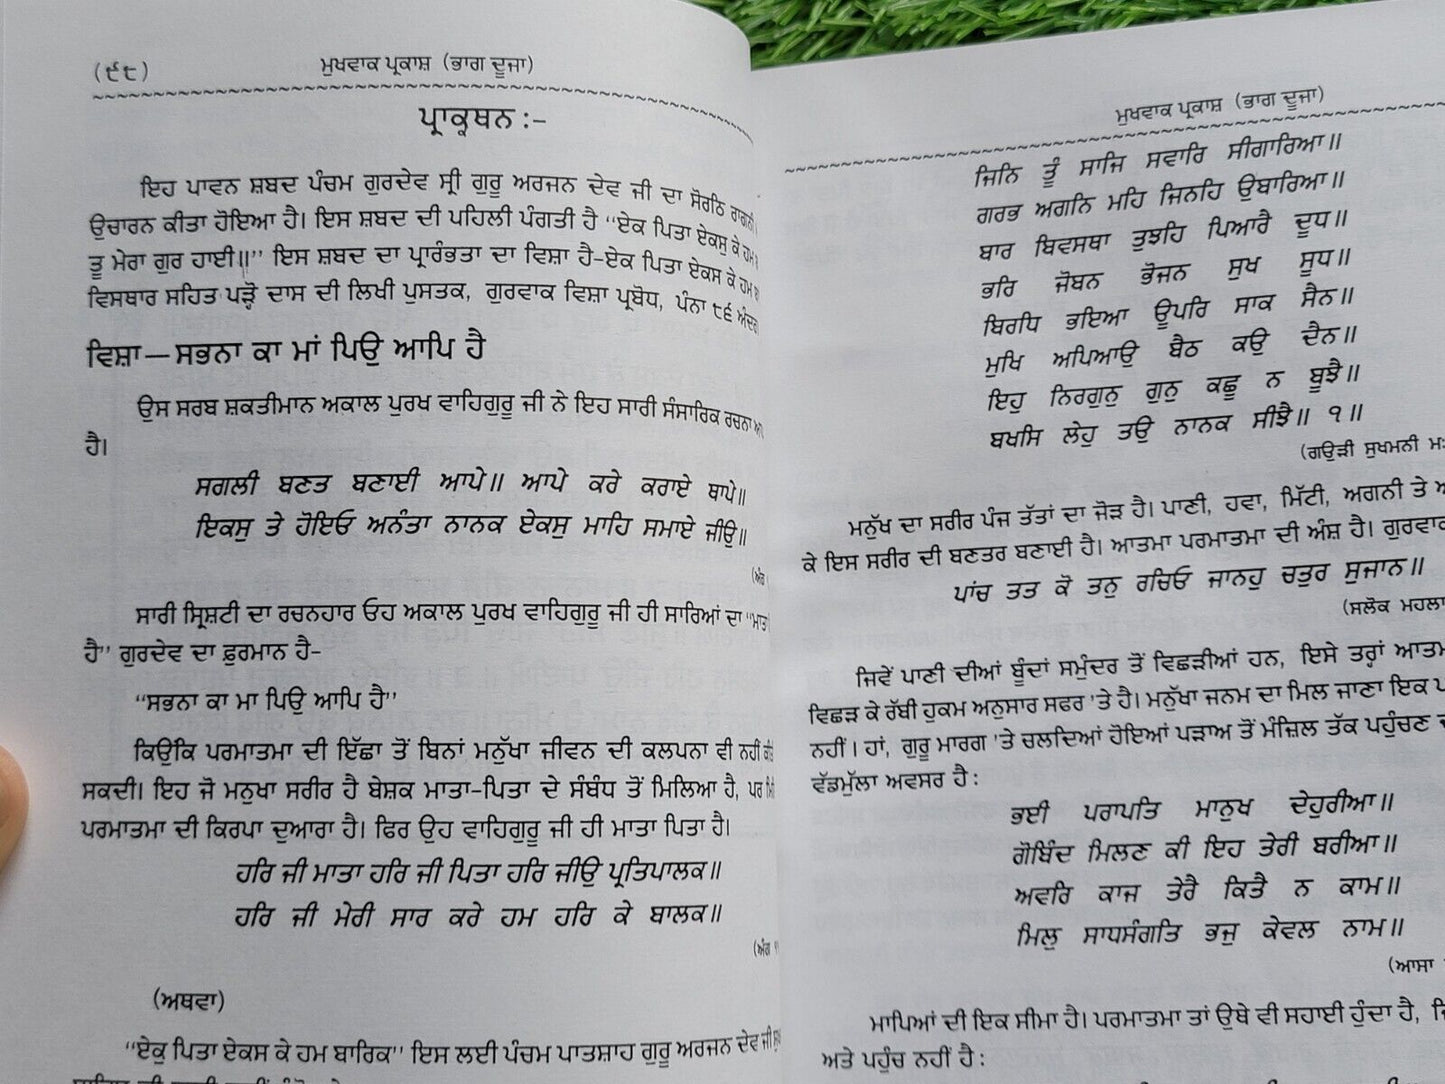 (੯੮) ਮੁਖਵਾਕ ਪ੍ਰਕਾਸ਼ (ਭਾਗ ਦੂਜਾ)
ਪ੍ਰਾਕ੍ਥਨ :-
ਇਹ ਪਾਵਨ ਸ਼ਬਦ ਪੰਚਮ ਗੁਰਦੇਵ ਸ੍ਰੀ ਗੁਰੂ ਅਰਜਨ ਦੇਵ ਜੀ ਦਾ ਸੋਰਠਿ ਰਾਗਨੀ
ਉਚਾਰਨ ਕੀਤਾ ਹੋਇਆ ਹੈ। ਇਸ ਸ਼ਬਦ ਦੀ ਪਹਿਲੀ ਪੰਗਤੀ ਹੈ “ਏਕ ਪਿਤਾ ਏਕਸੁ ਕੇ ਹਮ
ਤੂ ਮੇਰਾ ਗੁਰ ਹਾਈ॥” ਇਸ ਸ਼ਬਦ ਦਾ ਪ੍ਰਾਰੰਭਤਾ ਦਾ ਵਿਸ਼ਾ ਹੈ-ਏਕ ਪਿਤਾ ਏਕਸ ਕੇ ਹਮ
ਵਿਸਥਾਰ ਸਹਿਤ ਪੜ੍ਹੋ ਦਾਸ ਦੀ ਲਿਖੀ ਪੁਸਤਕ, ਗੁਰਵਾਕ ਵਿਸ਼ਾ ਪ੍ਰਬੋਧ, ਪੰਨਾ ੮੬ ਅੰਦਰ
ਵਿਸ਼ਾ—ਸਭਨਾ ਕਾ ਮਾਂ ਪਿਉ ਆਪਿ ਹੈ
ਉਸ ਸਰਬ ਸ਼ਕਤੀਮਾਨ ਅਕਾਲ ਪੁਰਖ ਵਾਹਿਗੁਰੂ ਜੀ ਨੇ ਇਹ ਸਾਰੀ ਸੰਸਾਰਿਕ ਰਚਨਾ
ਹੈ।
ਸਗਲੀ ਬਣਤ ਬਣਾਈ ਆਪੇ॥ ਆਪੇ ਕਰੇ ਕਰਾਏ ਥਾਪੇ॥
ਇਕਸੁ ਤੇ ਹੋਇਓ ਅਨੰਤਾ ਨਾਨਕ ਏਕਸੁ ਮਾਹਿ ਸਮਾਏ ਜੀਉ॥
(ਅੰਗ
ਸਾਰੀ ਸ੍ਰਿਸ਼ਟੀ ਦਾ ਰਚਨਹਾਰ ਓਹ ਅਕਾਲ ਪੁਰਖ ਵਾਹਿਗੁਰੂ ਜੀ ਹੀ ਸਾਰਿਆਂ ਦਾ “ਮਾਤ
ਹੈ” ਗੁਰਦੇਵ ਦਾ ਫ਼ੁਰਮਾਨ ਹੈ-
“ਸਭਨਾ ਕਾ ਮਾ ਪਿਉ ਆਪਿ ਹੈ”
ਕਿਉਕਿ ਪਰਮਾਤਮਾ ਦੀ ਇੱਛਾ ਤੋਂ ਬਿਨਾਂ ਮਨੁੱਖਾ ਜੀਵਨ ਦੀ ਕਲਪਨਾ ਵੀ ਨਹੀਂ
ਸਕਦੀ। ਇਹ ਜੋ ਮਨੁਖਾ ਸਰੀਰ ਹੈ ਬੇਸ਼ਕ ਮਾਤਾ-ਪਿਤਾ ਦੇ ਸੰਬੰਧ ਤੋਂ ਮਿਲਿਆ ਹੈ, ਪਰ
ਪਰਮਾਤਮਾ ਦੀ ਕਿਰਪਾ ਦੁਆਰਾ ਹੈ। ਫਿਰ ਉਹ ਵਾਹਿਗੁਰੂ ਜੀ ਹੀ ਮਾਤਾ ਪਿਤਾ ਹੈ।
ਹਰਿ ਜੀ ਮਾਤਾ ਹਰਿ ਜੀ ਪਿਤਾ ਹਰਿ ਜੀਉ ਪ੍ਰਤਿਪਾਲਕ॥
ਹਰਿ ਜੀ ਮੇਰੀ ਸਾਰ ਕਰੇ ਹਮ ਹਰਿ ਕੇ ਬਾਲਕ॥
(ਅੰਗ
(ਅਥਵਾ)
“ਏਕੁ ਪਿਤਾ ਏਕਸ ਕੇ ਹਮ ਬਾਰਿਕ” ਇਸ ਲਈ ਪੰਚਮ ਪਾਤਸ਼ਾਹ ਗੁਰੂ ਅਰਜਨ ਦੇਵ ਜੀ
ਮੁਖਵਾਕ ਪ੍ਰਕਾਸ਼ (ਭਾਗ ਦੂਜਾ)
ਜਿਨਿ ਤੂੰ ਸਾਜਿ ਸਵਾਰਿ ਸੀਗਾਰਿਆ॥
ਗਰਭ ਅਗਨਿ ਮਹਿ ਜਿਨਹਿ ਉਬਾਰਿਆ॥
ਬਾਰ ਬਿਵਸਥਾ ਤੁਝਹਿ ਪਿਆਰੈ ਦੂਧ॥
ਭਰਿ ਜੋਬਨ ਭੋਜਨ ਸੁਖ ਸੂਧ॥
ਬਿਰਧਿ ਭਇਆ ਊਪਰਿ ਸਾਕ ਸੈਨ॥
ਮੁਖਿ ਅਪਿਆਉ ਬੈਠ ਕਉ ਦੈਨ॥
ਇਹੁ ਨਿਰਗੁਨੁ ਗੁਨੁ ਕਛੂ ਨ ਬੂਝੈ॥
ਬਖਸਿ ਲੇਹੁ ਤਉ ਨਾਨਕ ਸੀਝੈ॥ ੧॥
(ਗਉੜੀ ਸੁਖਮਨੀ ਮ:
ਮਨੁੱਖ ਦਾ ਸਰੀਰ ਪੰਜ ਤੱਤਾਂ ਦਾ ਜੋੜ ਹੈ। ਪਾਣੀ, ਹਵਾ, ਮਿੱਟੀ, ਅਗਨੀ ਤੇ
ਕੇ ਇਸ ਸਰੀਰ ਦੀ ਬਣਤਰ ਬਣਾਈ ਹੈ। ਆਤਮਾ ਪਰਮਾਤਮਾ ਦੀ ਅੰਸ਼ ਹੈ। ਗੁਰਵਾਰ
ਪਾਂਚ ਤਤ ਕੋ ਤਨੁ ਰਚਿਓ ਜਾਨਹੁ ਚਤੁਰ ਸੁਜਾਨ॥
(ਸਲੋਕ ਮਹਲਾ
ਜਿਵੇਂ ਪਾਣੀ ਦੀਆਂ ਬੂੰਦਾਂ ਸਮੁੰਦਰ ਤੋਂ ਵਿਛੜੀਆਂ ਹਨ, ਇਸੇ ਤਰ੍ਹਾਂ ਆਤਮ
ਵਿਛੜ ਕੇ ਰੱਬੀ ਹੁਕਮ ਅਨੁਸਾਰ ਸਫਰ 'ਤੇ ਹੈ। ਮਨੁੱਖਾ ਜਨਮ ਦਾ ਮਿਲ ਜਾਣਾ ਇਕ
ਨਹੀਂ। ਹਾਂ, ਗੁਰੂ ਮਾਰਗ 'ਤੇ ਚਲਦਿਆਂ ਹੋਇਆਂ ਪੜਾਅ ਤੋਂ ਮੰਜ਼ਿਲ ਤੱਕ ਪਹੁੰਚਣ
ਵੱਡਮੁੱਲਾ ਅਵਸਰ ਹੈ :
ਭਈ ਪਰਾਪਤਿ ਮਾਨੁਖ ਦੇਹੁਰੀਆ॥
ਗੋਬਿੰਦ ਮਿਲਣ ਕੀ ਇਹ ਤੇਰੀ ਬਰੀਆ॥
ਅਵਰਿ ਕਾਜ ਤੇਰੈ ਕਿਤੈ ਨ ਕਾਮ॥
ਮਿਲੁ ਸਾਧਸੰਗਤਿ ਭਜੁ ਕੇਵਲ ਨਾਮ॥
(ਆਸਾ
ਮਾਪਿਆਂ ਦੀ ਇਕ ਸੀਮਾ ਹੈ। ਪਰਮਾਤਮਾ ਤਾਂ ਉਥੇ ਵੀ ਸਹਾਈ ਹੁੰਦਾ ਹੈ,
ਅਤੇ ਪਹੁੰਚ ਨਹੀਂ ਹੈ :